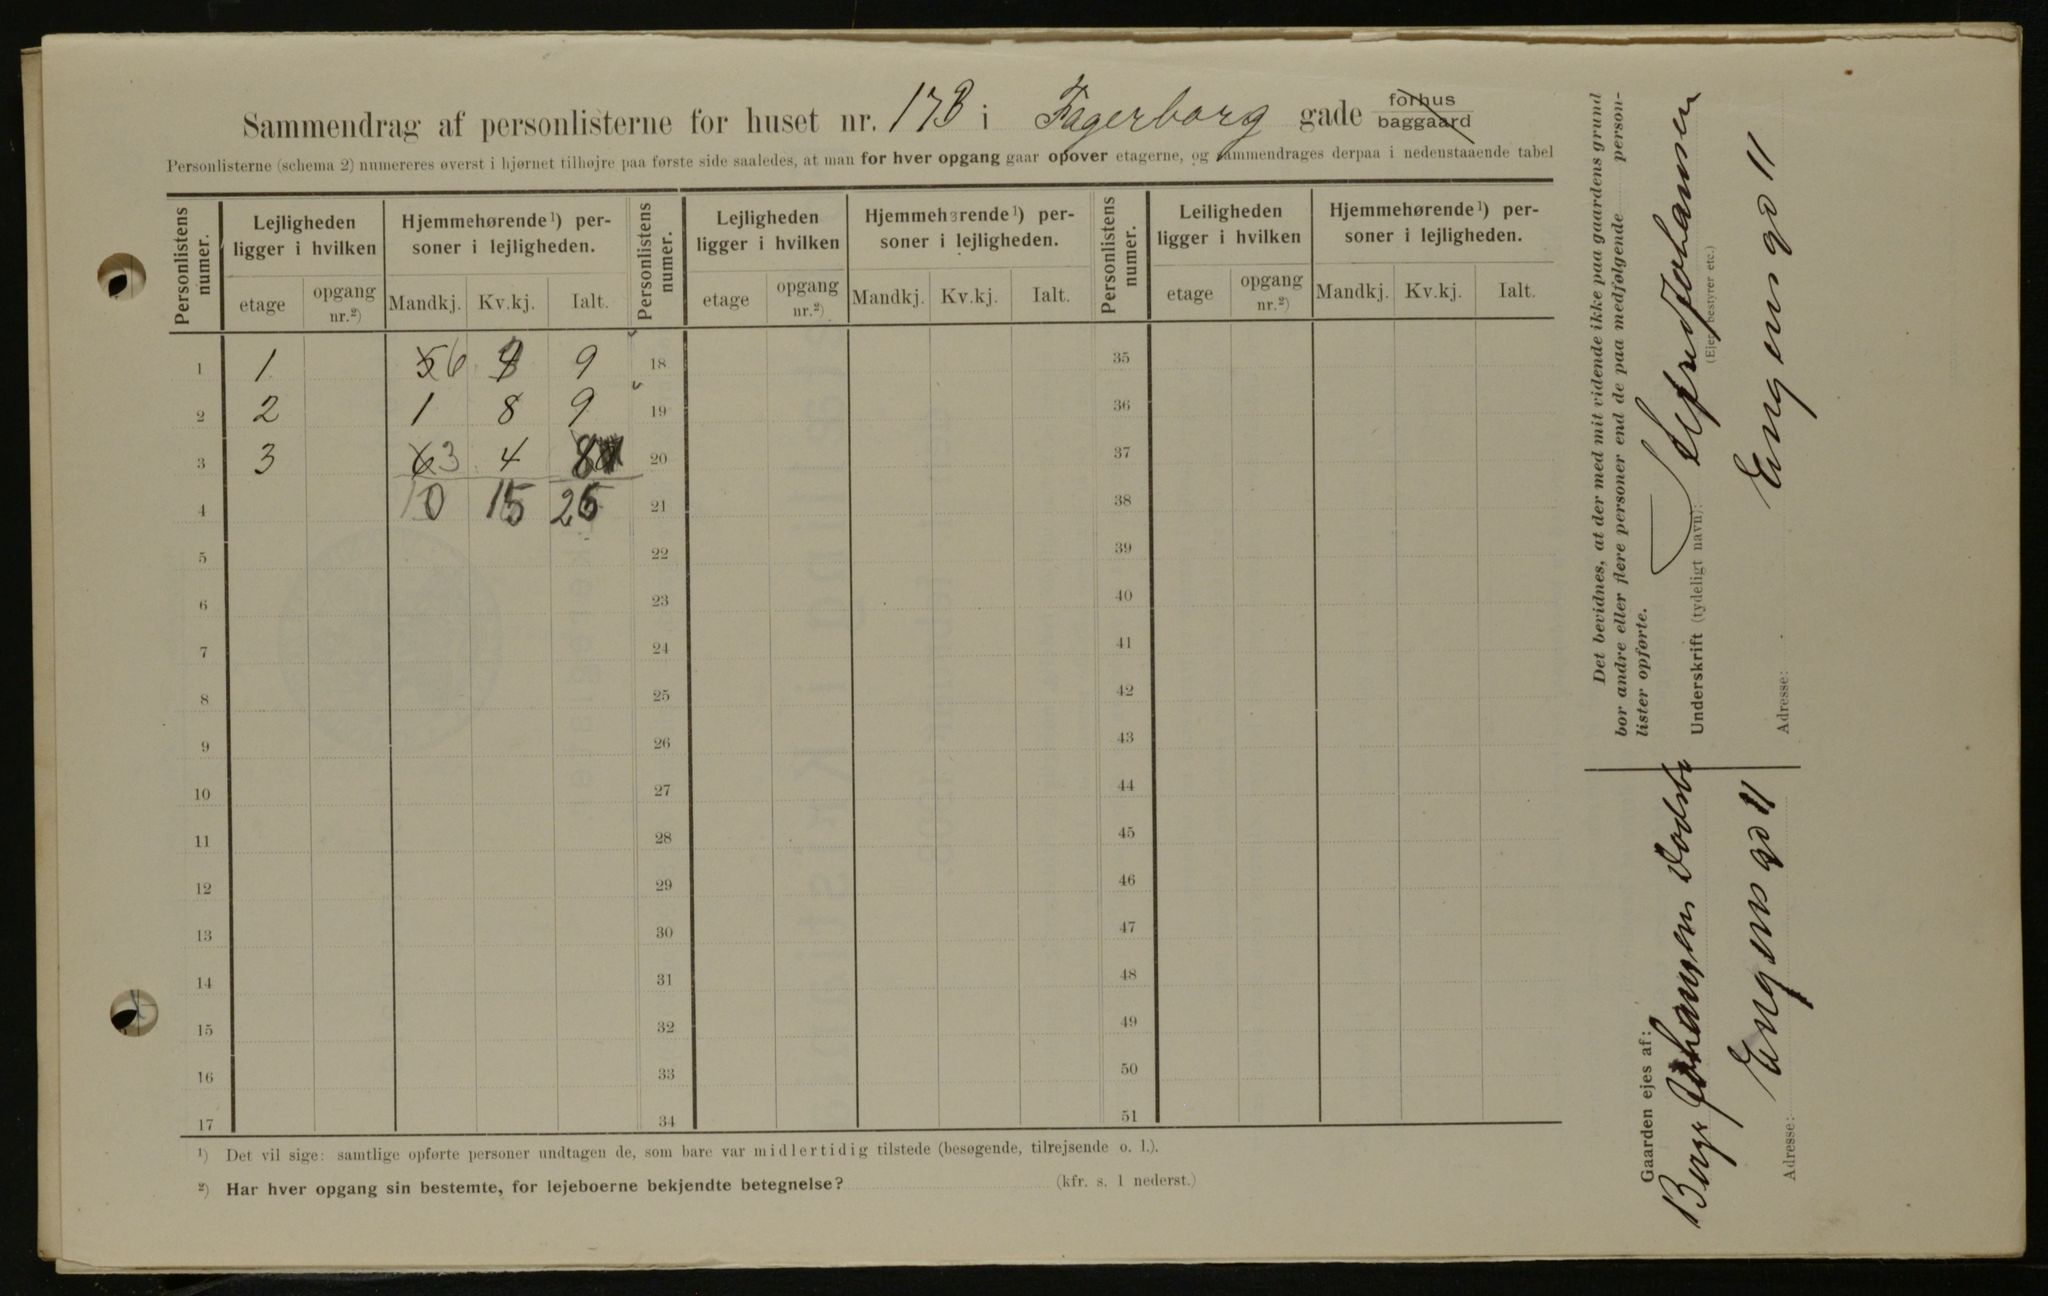 Sammendrag af personlisterne for huset nr. 17B i Fagerborg gade forhus baggaard
Personlisterne (schema 2) numereres øverst i hjørnet tilhøjre paa første side saaledes, at man for hver opgang gaar opover etagerne, og sammendrages derpaa i nedenstaaende tabel
Personlistens numer. Lejligheden ligger i hvilken Hjemmehørende¹) personer i lejligheden. Personlistens numer. Lejligheden ligger i hvilken Hjemmehørende¹) personer i lejligheden. Personlistens numer. Leiligheden ligger i hvilken Hjemmehørende¹) personer i lejligheden.
etage opgang nr.²) Mandkj. Kv.kj. Ialt. etage opgang nr.²) Mandkj. Kv.kj. Ialt. etage opgang nr.²) Mandkj. Kv.kj. Ialt.
1 1 5 6 9 18 35
2 2 1 8 9 19 36
3 3 6 3 4 20 37
4 10 15 25 21 38
5 22 39
6 23 40
7 24 41
8 25 42
9 26 43
10 27 44
11 28 45
12 29 46
13 30 47
14 31 48
15 32 49
16 33 50
17 34 51
¹) Det vil sige: samtlige opførte personer undtagen de, som bare var midlertidig tilstede (besøgende, tilrejsende o. l.).
²) Har hver opgang sin bestemte, for lejeboerne bekjendte betegnelse? (kfr. s. 1 nederst.)
Det bevidnes, at der med mit vidende ikke paa gaardens grund
bor andre eller flere personer end de paa medfølgende person-
lister opførte.
Underskrift (tydeligt navn): Alfred Johansen
(Ejer, bestyrer etc.)
Adresse: Engensgd 11
Gaarden ejes af:
Johansen
Adresse: Engensgd 11